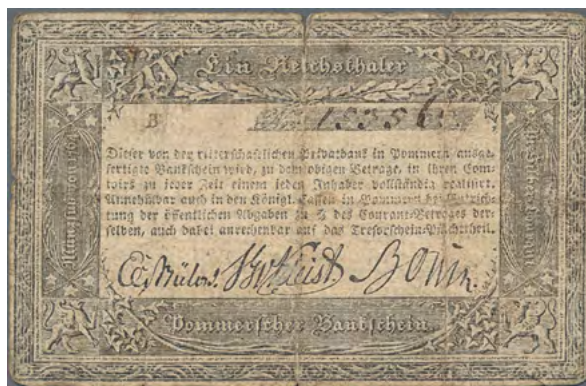 Ein Reichsthaler
B
15556
Dieser von der ritterschaftlichen Privatbank in Pommern ausge-
fertigte Bankschein wird, zu dem obigen Betrage, in ihren Com-
toirs zu jeder Zeit einem jeden Inhaber vollständig realisirt.
Annehmbar auch in den Königl. Cassen in Pommern bei Entrich-
tung der öffentlichen Abgaben zu des Courant-Betrages der-
selben, auch dabei anrechenbar auf das Tresorschein-Pflichttheil.
Bülow. Kleist Bonin.
Münzfuß von 1764
Pommerscher Bankschein